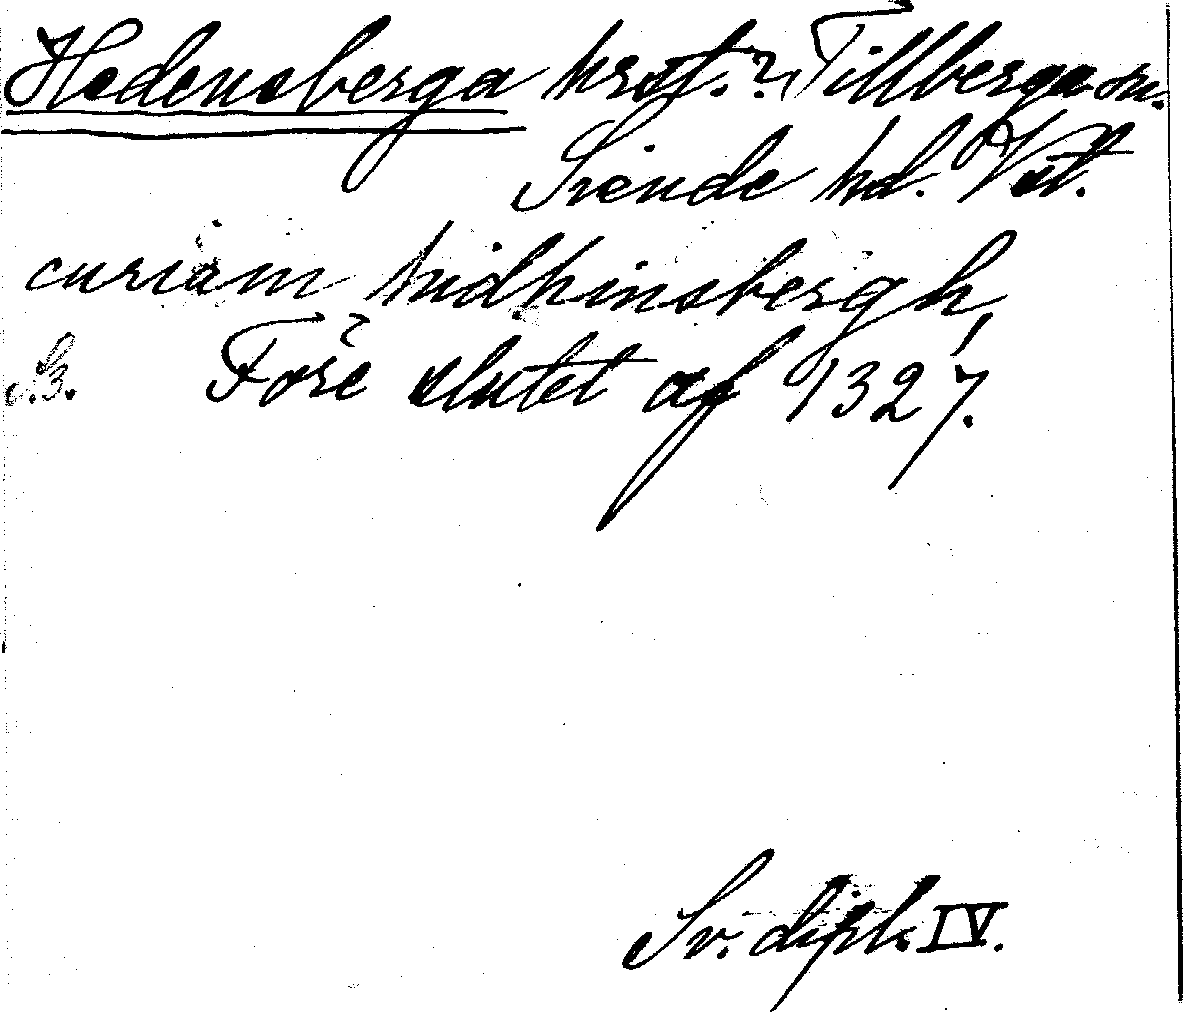 Hedensberga hrst.?, Tillberga sn.
Siende hd. Vstt.
curiam huidhinsbergh,
S. 3. Före slutet af 1327.
Sv. dipl. IV.